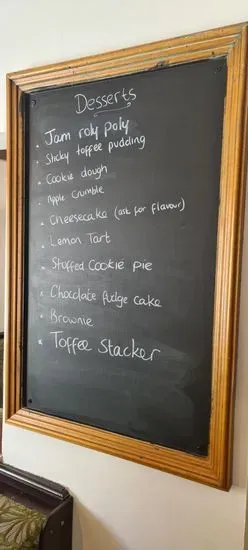 Desserts
Jam roly poly
Sticky toffee pudding
Cookie dough
Apple Crumble
Cheesecake (ask for flavour)
Lemon Tart
Stuffed Cookie Pie
Chocolate fudge cake
Brownie
Toffee Stacker